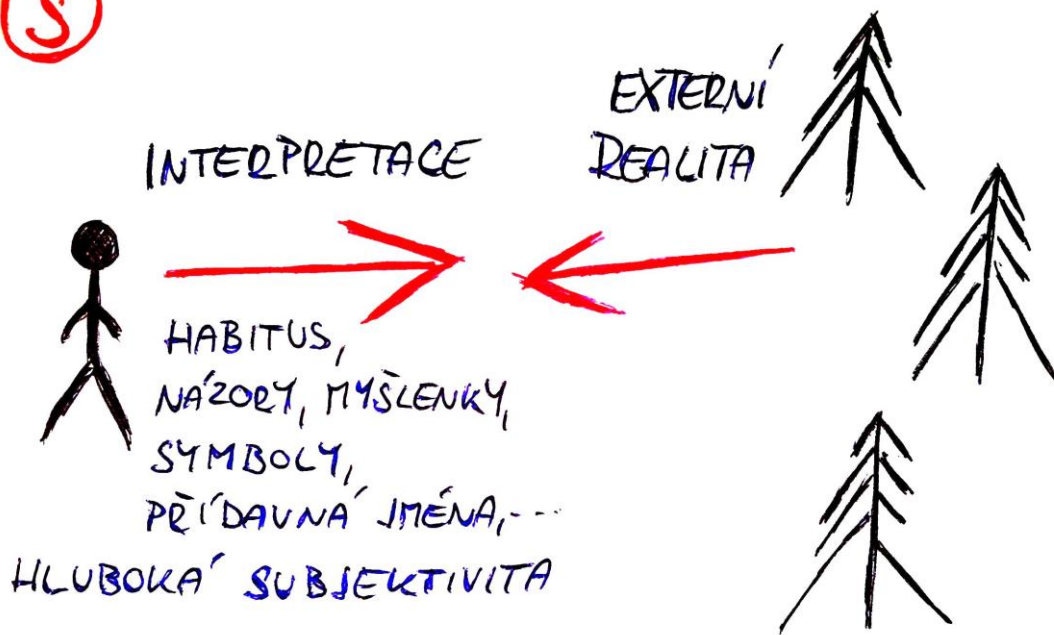 INTERPRETACE
EXTERNÍ
REALITA
HABITUS,
NÁZORY, MYŠLENKY,
SYMBOLY,
PŘÍDAVNÁ JMÉNA,...
HLUBOKÁ SUBJEKTIVITA